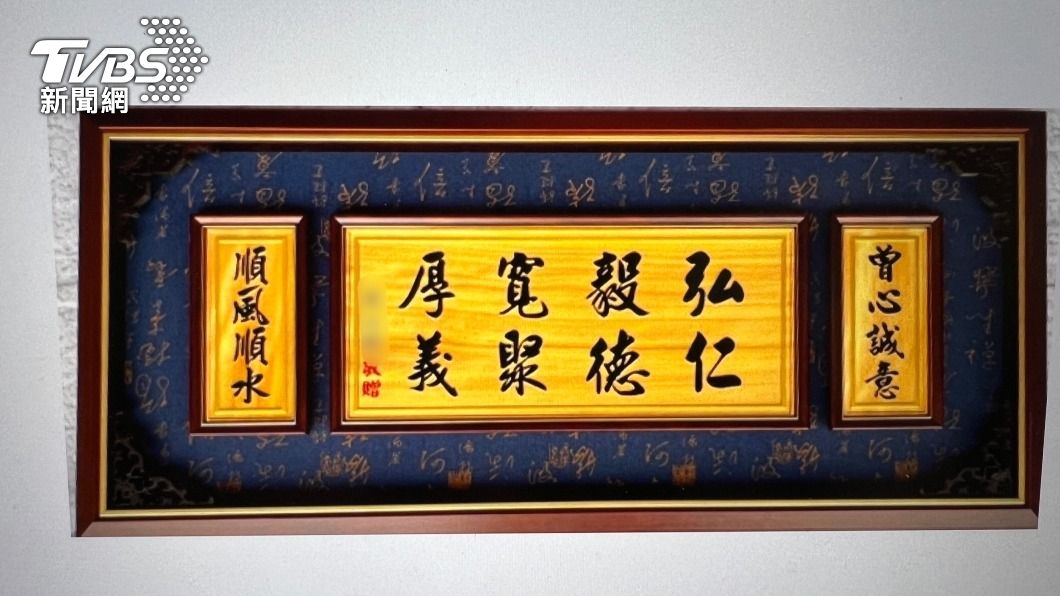 TVBS
新聞網
曾心誠意
弘仁
毅德
寬聚
厚義
贈
順風順水